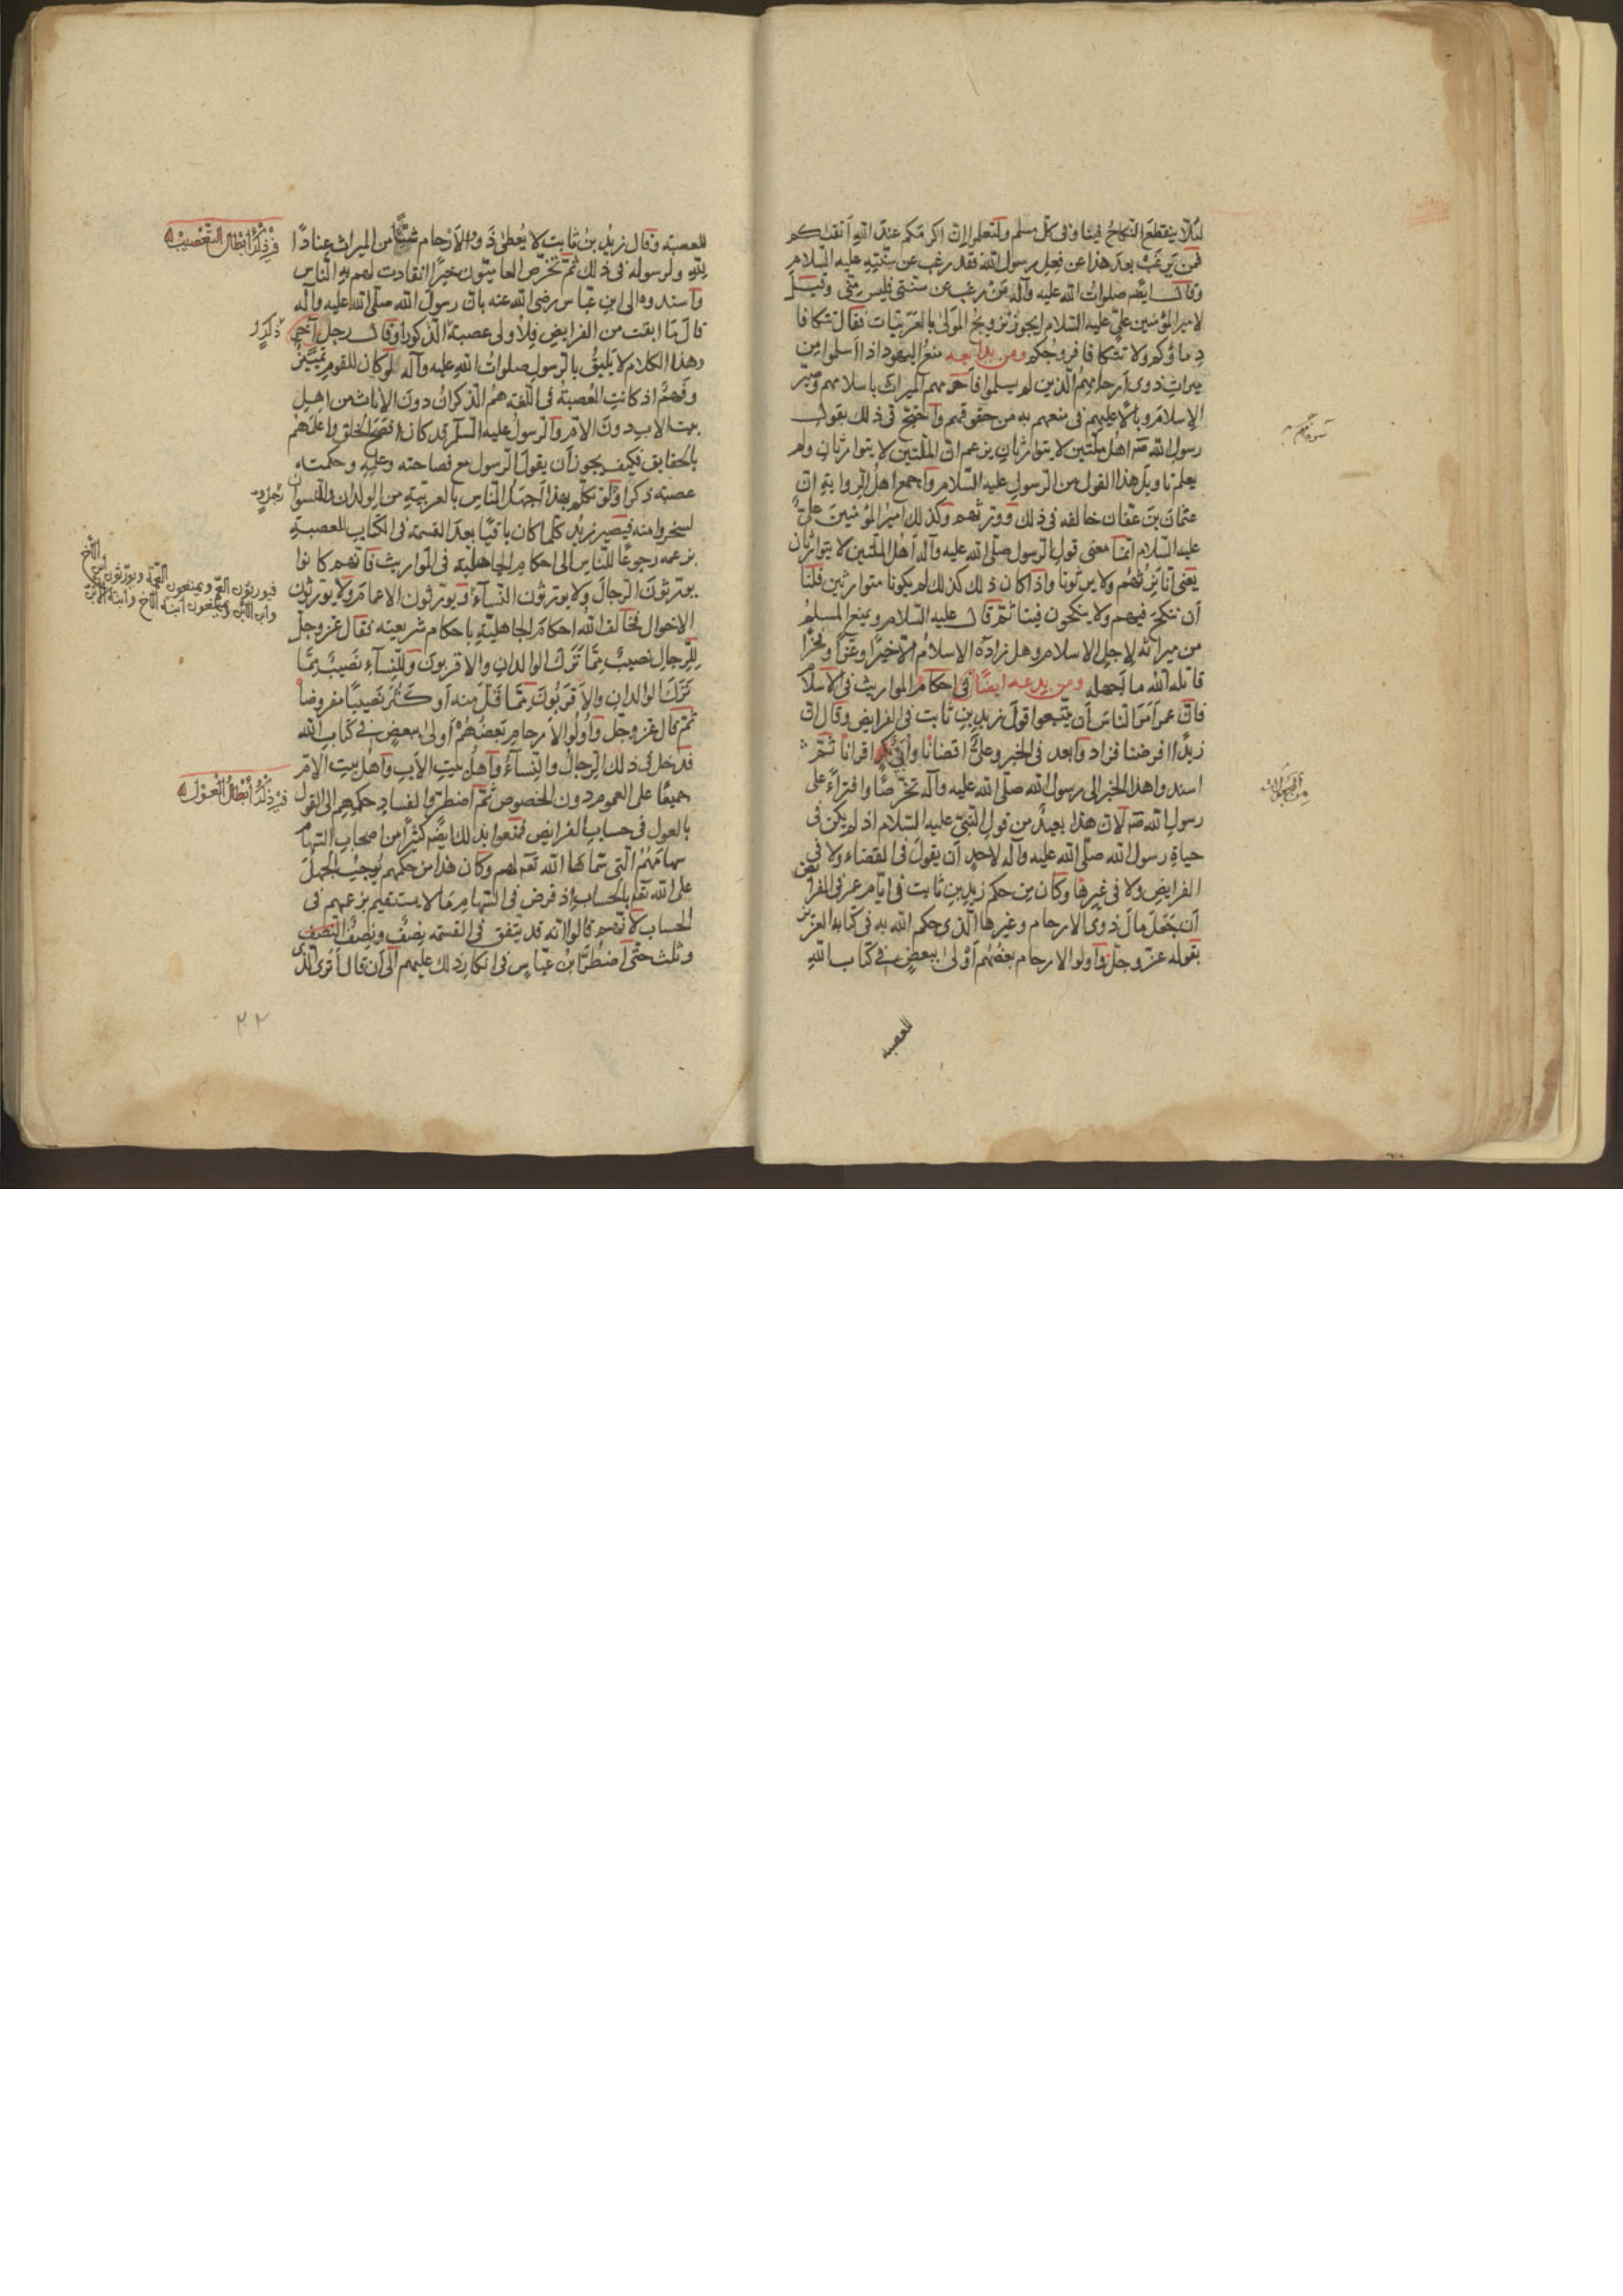 لئلا ينقطع النكاح فينا وفى كل مسلم ولتعلموا ان اكرمكم عند الله أتقيكم
فمن يرغب بعد هذا عن فعل رسول الله فقد رغب عن سنته عليه السلام
وقال ايضه صلوات الله عليه وآله من رغب عن سنتى فليس منى وقيل
لامير المؤمنين على عليه السلام ايجوز تزويج الموالى بالعربيات فقال تتكافا
دماؤكم ولا تتكافا فروجكم ومن بدايعه منع اليهود اذا أسلموا من
ميراث ذوى أرحامهم الذين لم يسلموا فأحرمهم الميراث باسلامهم وصير
الاسلام وبالا عليهم فى منعهم به من حقوقهم واحتج فى ذلك بقول
رسول الله صه اهل ملتين لا يتوارثان يزعم ان الملتين لا يتوارثان ولم
يعلم تاويل هذا القول من الرسول عليه السلام وأجمع اهل الرواية ان
عثمان بن عفان خالفه فى ذلك وورثهم وكذلك امير المؤمنين على
عليه السلام انما معنى قول الرسول صلى الله عليه وآله أهل الملتين لا يتوارثان
يعنى أنا نرثهم ولا يرثونا واذا كان ذلك كذلك لم يكونا متوارثين قلنا
أن ننكح فيهم ولا ينكحون فينا ثم قال عليه السلام ويمنع المسلم
من ميراثه لاجل الاسلام وهل زاده الاسلام الا خيرا وعزا وفخرا
قاتله الله ما أجهله ومن بدعه ايضا فى احكام المواريث فى الاسلام
فان عمر أمر الناس أن يتبعوا قول زيد بن ثابت فى الفرايض وقال ان
زيدا افرضنا فزاد وا بعد فى الخبر وعلى اقضانا وأبى اقرانا ثم
اسندوا هذا الخبر الى رسول الله صلى الله عليه وآله تخرصا وافتراء على
رسول الله صه لان هذا بعيد من قول النبى عليه السلام اذ لم يكن فى
حياة رسول الله صلى الله عليه وآله لاحد أن يقول فى القضاء ولا فى
الفرايض ولا فى غيرها وكان من حكم زيد بن ثابت فى ايام عمر فى الفرايض
أن جعل مال ذوى الارحام وغيرها الذى حكم الله به فى كتابه العزيز
بقوله عز وجل وأولوا الارحام بعضهم أولى ببعض فى كتاب الله
للعصبه
للعصبه وقال زيد بن ثابت لا يعطى ذووا الأرحام شيئا من الميراث عنادا
لله ولرسوله فى ذلك ثم تخرص العاميون خبرا انقادت لهم به الناس
وأسندوه الى ابن عباس رضى الله عنه بان رسول الله صلى الله عليه وآله
قال ما ابقت من الفرايض فلأولى عصبة الذكور أو قال رجل
وهذا الكلام لا يليق بالرسول صلوات الله عليه وآله لو كان للقوم تمييز
وفهم اذ كانت العصبة فى اللغه هم الذكران دون الاناث من اهل
بيت الاب دون الام والرسول عليه السلم قد كان افصح الخلق واعلمهم
بالحقايق فكيف يجوز أن يقول الرسول مع فصاحته وعلمه وحكمته
عصبة ذكر ولو تكلم بهذا أجهل الناس بالعربية من الولدان والنسوان
لسخروا منه فيصير زيد كلما كان باقيا بعد القسمة فى الكتاب للعصبة
بزعمه رجوعا للناس الى احكام الجاهلية فى المواريث فانهم كانوا
يورثون الرجال ولا يورثون النساء ويورثون الاعمام ولا يورثون
الاخوال فخالف الله احكام الجاهلية باحكام شريعته فقال عز وجل
للرجال نصيب مما ترك الوالدان والاقربون وللنساء نصيب مما
ترك الوالدان والأقربون مما قل منه أو كثر نصيبا مفروضا
ثم قال عز وجل وأولوا الأرحام بعضهم أولى ببعض فى كتاب الله
فدخل فى ذلك الرجال والنساء وأهل بيت الأب وأهل بيت الام
جميعا على العموم دون الخصوص ثم اضطروا لفساد حكمهم الى القول
بالعول فى حساب الفرايض فمنعوا بذلك ايضه كثيرا من اصحاب السهام
سهامهم التى سماها الله تعه لهم وكان هذا من حكمهم يوجب الجهل
على الله تعه بالحساب اذ فرض فى السهام ما لا يستقيم بزعمهم فى
الحساب لأنهم قالوا انه قد يتفق فى القسمه نصف ونصف النصف
وثلث حتى اضطر ابن عباس فى انكار ذلك عليهم الى أن قال أترى الذى
فى ذكر ابطال التعصيب
ذكر
فيورثون العم ويمنعون العمة ويورثون ابن الأخ
وابن الابن ويمنعون ابنة الأخ وابنة الابن
فى ذكر ابطال العول
٢٢